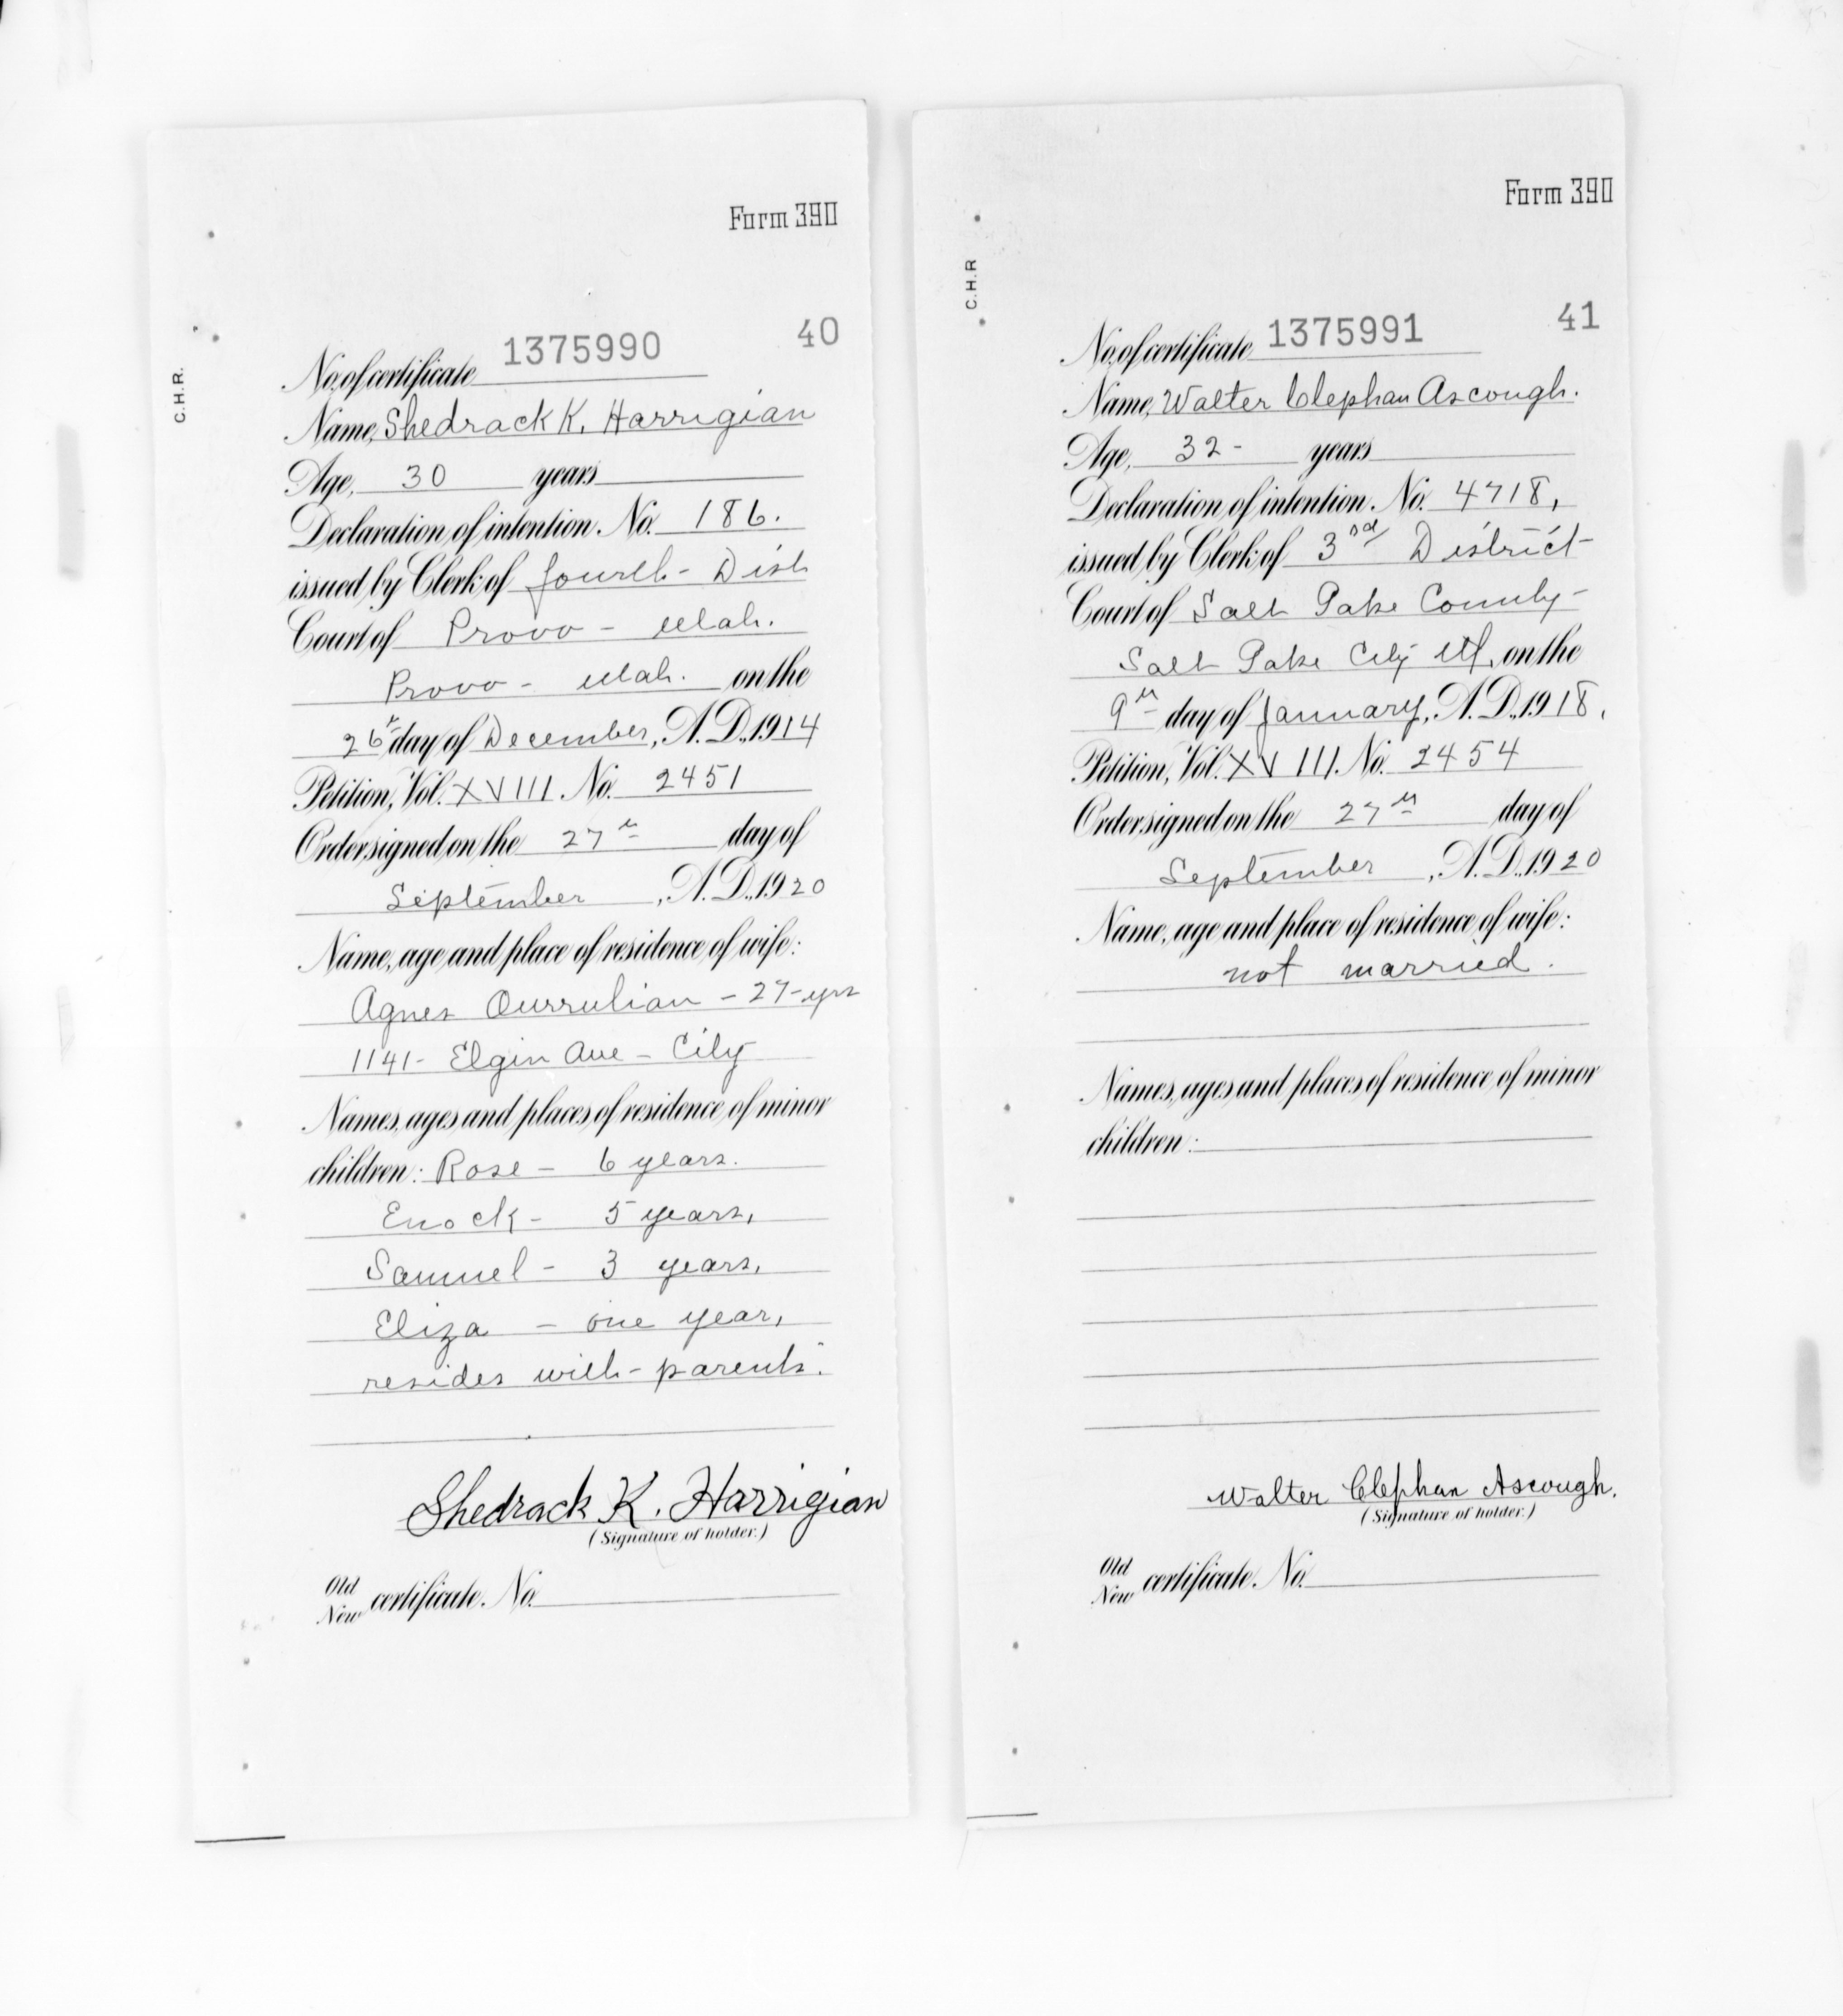 Form 390
C.H.R.
40
No. of certificate 1375990
Name, Shedrack K. Harrigian
Age, 30 years
Declaration of intention. No. 186.
issued by Clerk of fourth - Dist
Court of Provo - Utah.
Provo - Utah. on the
26th day of December, A.D., 1914
Petition, Vol. XVIII. No. 2451
Order signed on the 27th day of
September, A.D., 1920
Name, age and place of residence of wife:
Agnes Ourrulian - 27 - yrs
1141 - Elgin Ave - City
Names, ages and places of residence of minor
children: Rose - 6 years.
Enock - 5 years,
Samuel - 3 years,
Eliza - one year,
resides with - parents.
Shedrack K. Harrigian
(Signature of holder.)
Old
New certificate. No.
Form 390
C.H.R
41
No. of certificate 1375991
Name, Walter Clephan Ascough.
Age, 32 - years
Declaration of intention. No. 4718,
issued by Clerk of 3rd District -
Court of Salt Lake County -
Salt Lake City Ut, on the
9th day of January, A.D., 1918,
Petition, Vol. XVIII. No. 2454
Order signed on the 27th day of
September, A.D., 1920
Name, age and place of residence of wife:
not married.
Names, ages and places of residence of minor
children:
Walter Clephan Ascough.
(Signature of holder.)
Old
New certificate. No.